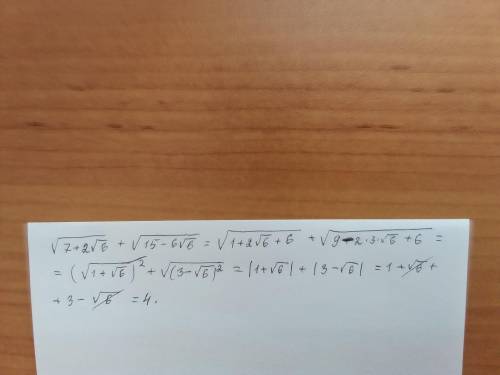 √(7+2√6) + √(15-6√6) = √(1+2√6+6) + √(9-2·3·√6+6) =
= (√(1+√6))² + √(3-√6)² = |1+√6| + |3-√6| = 1+√6+
+3-√6 = 4.